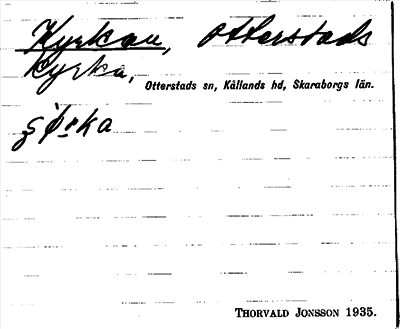 Kyrkan, Otterstads
kyrka,
Otterstads sn, Kållands hd, Skaraborgs län.
THORVALD JONSSON 1935.